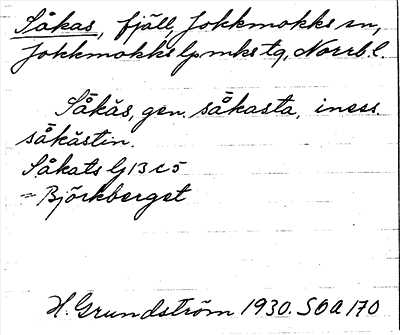 Såkas, fjäll, Jokkmokks sn,
Jokkmokks lpmks tg, Norrb. l.
Såkăs, gen. såkasta, iness.
såkăstin.
Såkats Lj 13 c 5
= Björkberget
H. Grundström 1930. SOA 170